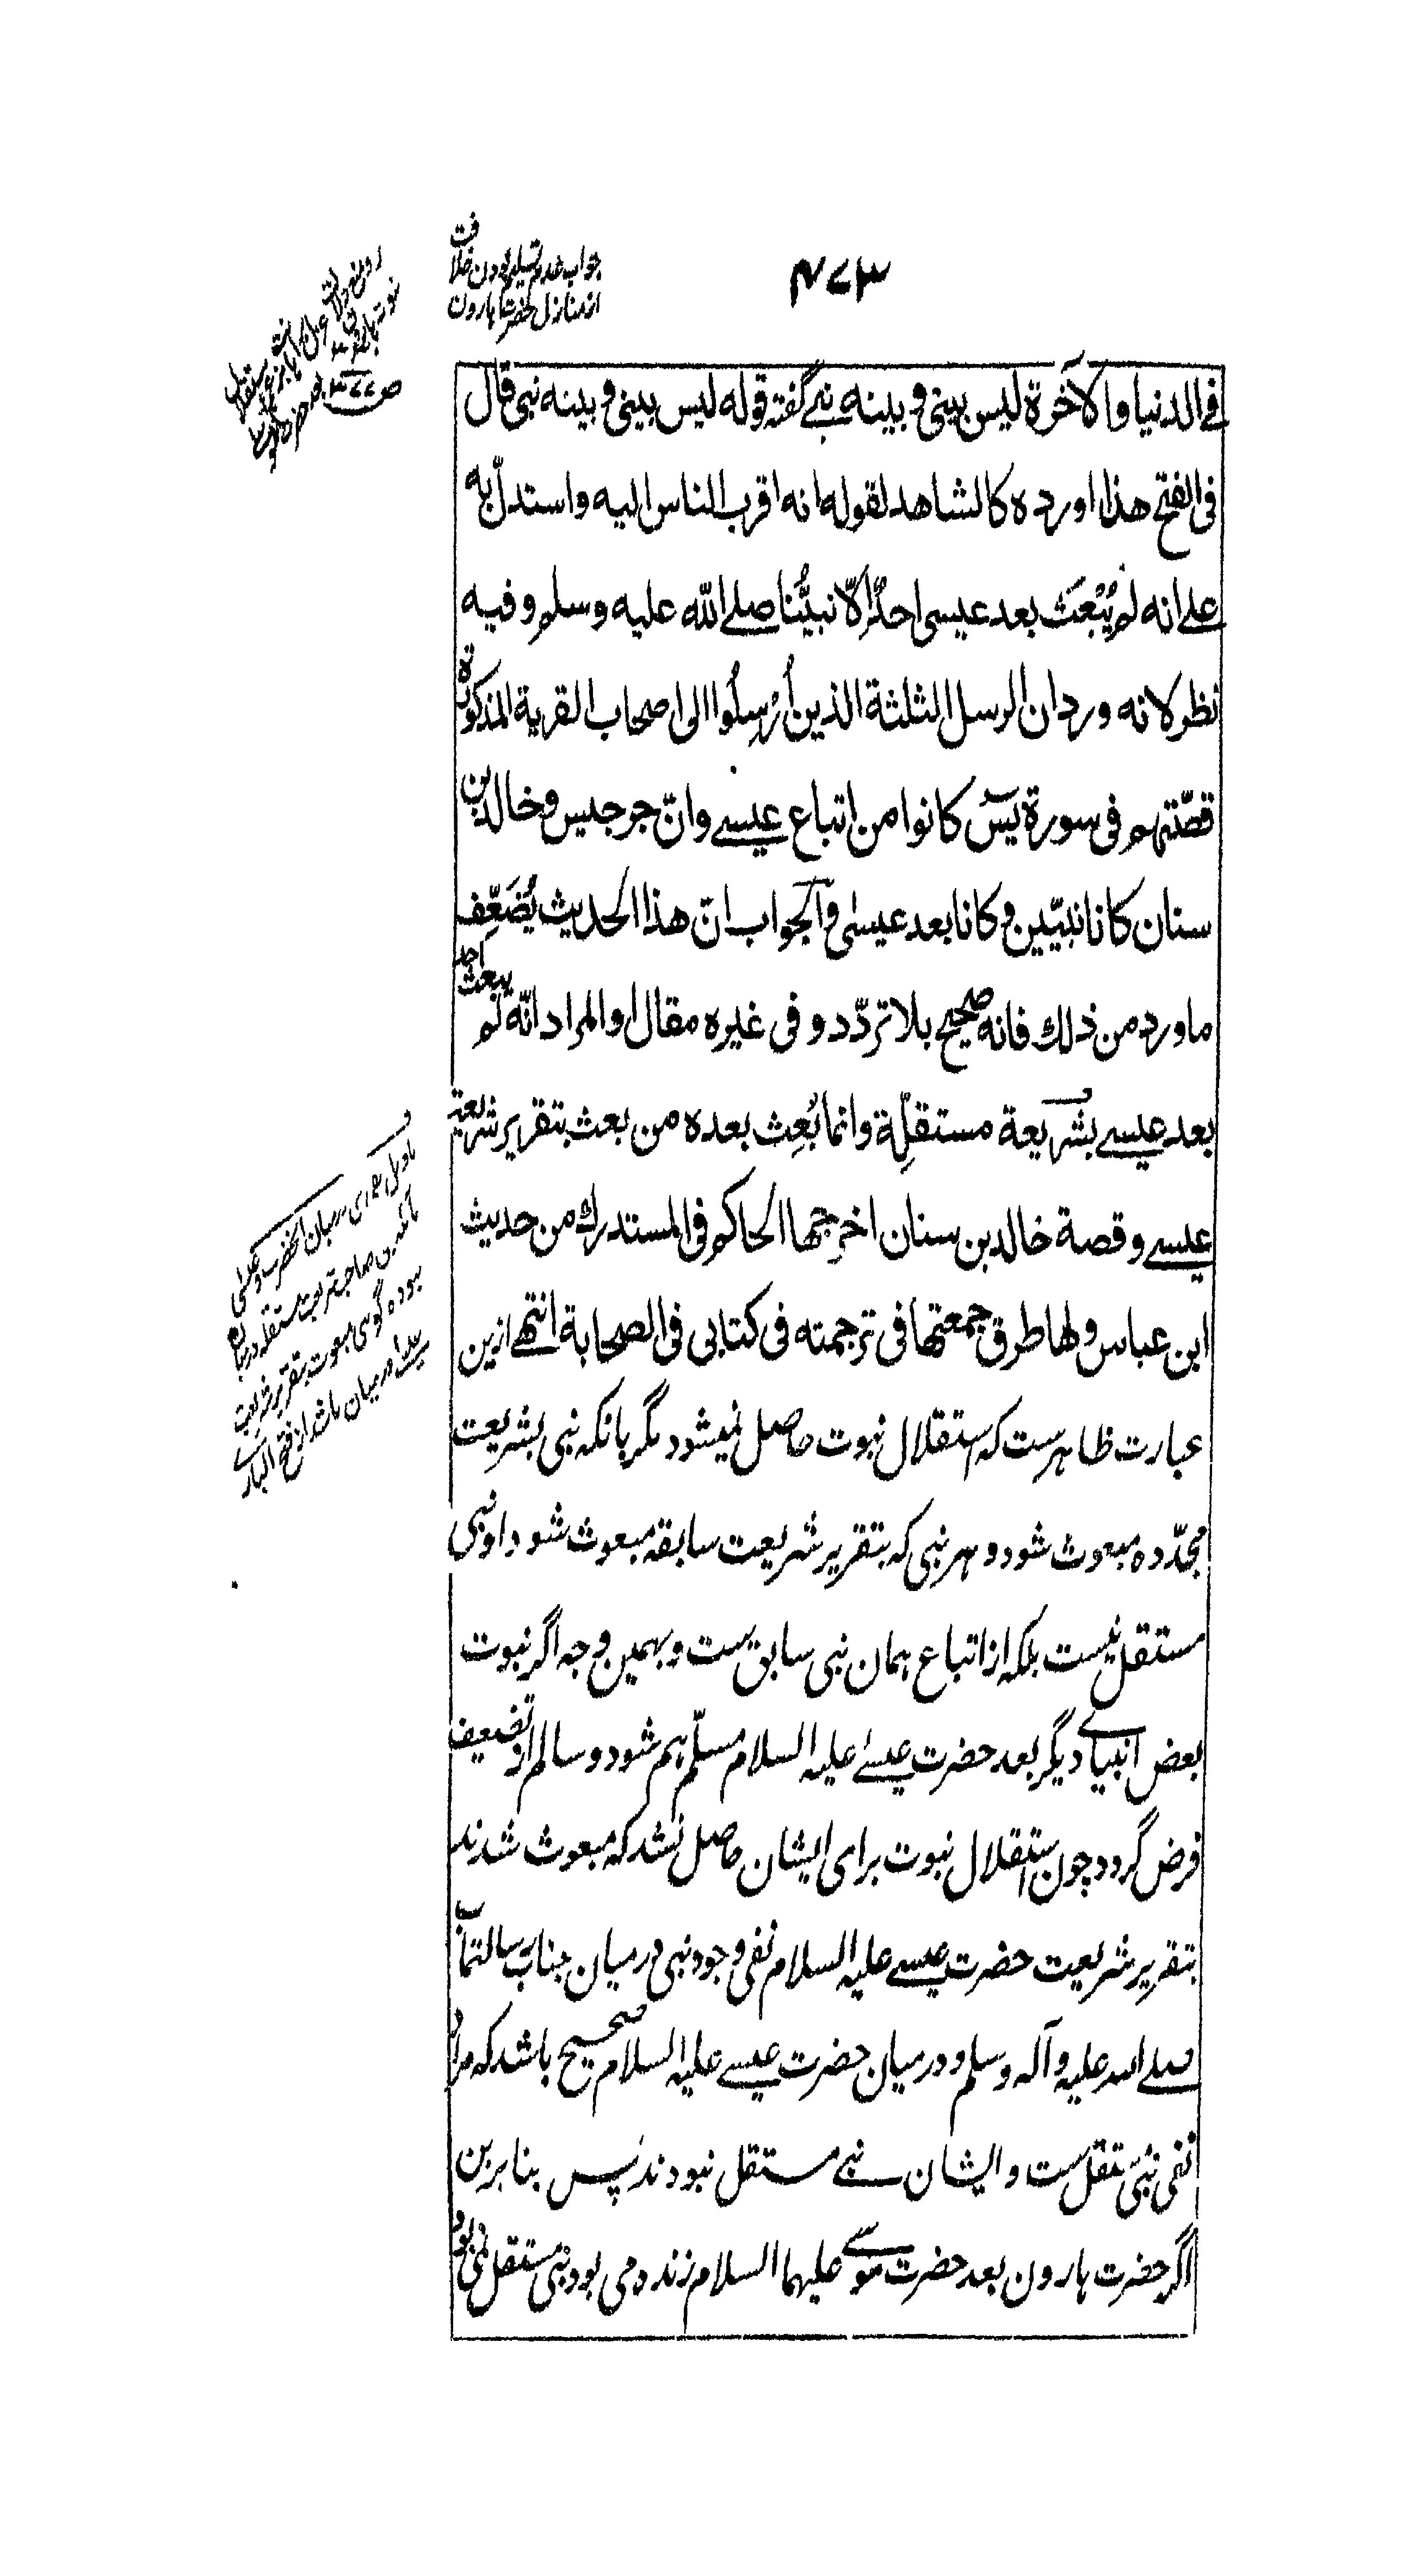 ۴۷۳
جواب عدم تسلیم بودن خلافت
از منازل حضرت هارون
فی الدنیا والآخرة لیس بینی و بینه نبی گفته قوله لیس بینی و بینه نبی قال
فی الفتح هذا اورده کالشاهد لقوله انه اقرب الناس الیه واستدلّ به
علی انه لم یُبْعَث بعد عیسی احدٌ الّا نبیُّنا صلی اللّه علیه وسلم وفیه
نظر لانه ورد ان الرسل الثلثة الذین اُرْسِلُوا الی اصحاب القریة المذکورة
قصّتهم فی سورة یسٓ کانوا من اتباع عیسی وانّ جرجیس وخالد بن
سنان کانا نبیّین وکانا بعد عیسی والجواب انّ هذا الحدیث یُضَعِّف
ما ورد من ذلك فانه صحیح بلا تردّد وفی غیره مقال او المراد انّه لم یبعث احد
بعد عیسی بشریعة مستقلّة وانما بُعِث بعده من بعث بتقریر شریعة
عیسی وقصة خالد بن سنان اخرجها الحاکم فی المستدرك من حدیث
ابن عباس ولها طرق جمعتها فی ترجمته فی کتابی فی الصحابة انتهی ازین
عبارت ظاهرست که استقلال نبوت حاصل نمیشود مگر بانکه نبی بشریعت
مجدّده مبعوث شود و هر نبی که بتقریر شریعت سابقه مبعوث شود او نبی
مستقل نیست بلکه از اتباع همان نبی سابق ست و بهمین وجه اگر نبوت
بعض انبیای دیگر بعد حضرت عیسی علیه السلام مسلّم هم شود و سالم از تضعیف
فرض گردد چون استقلال نبوت برای ایشان حاصل نشد که مبعوث شدند
بتقریر شریعت حضرت عیسی علیه السلام نفی وجود نبی درمیان جناب رسالتمآب
صلی الله علیه وآله وسلم و درمیان حضرت عیسی علیه السلام صحیح باشد که مراد
نفی نبی مستقل ست و ایشان نبی مستقل نبودند پس بنابرین
اگر حضرت هارون بعد حضرت موسی علیهما السلام زنده می بود نبی مستقل نمی بود